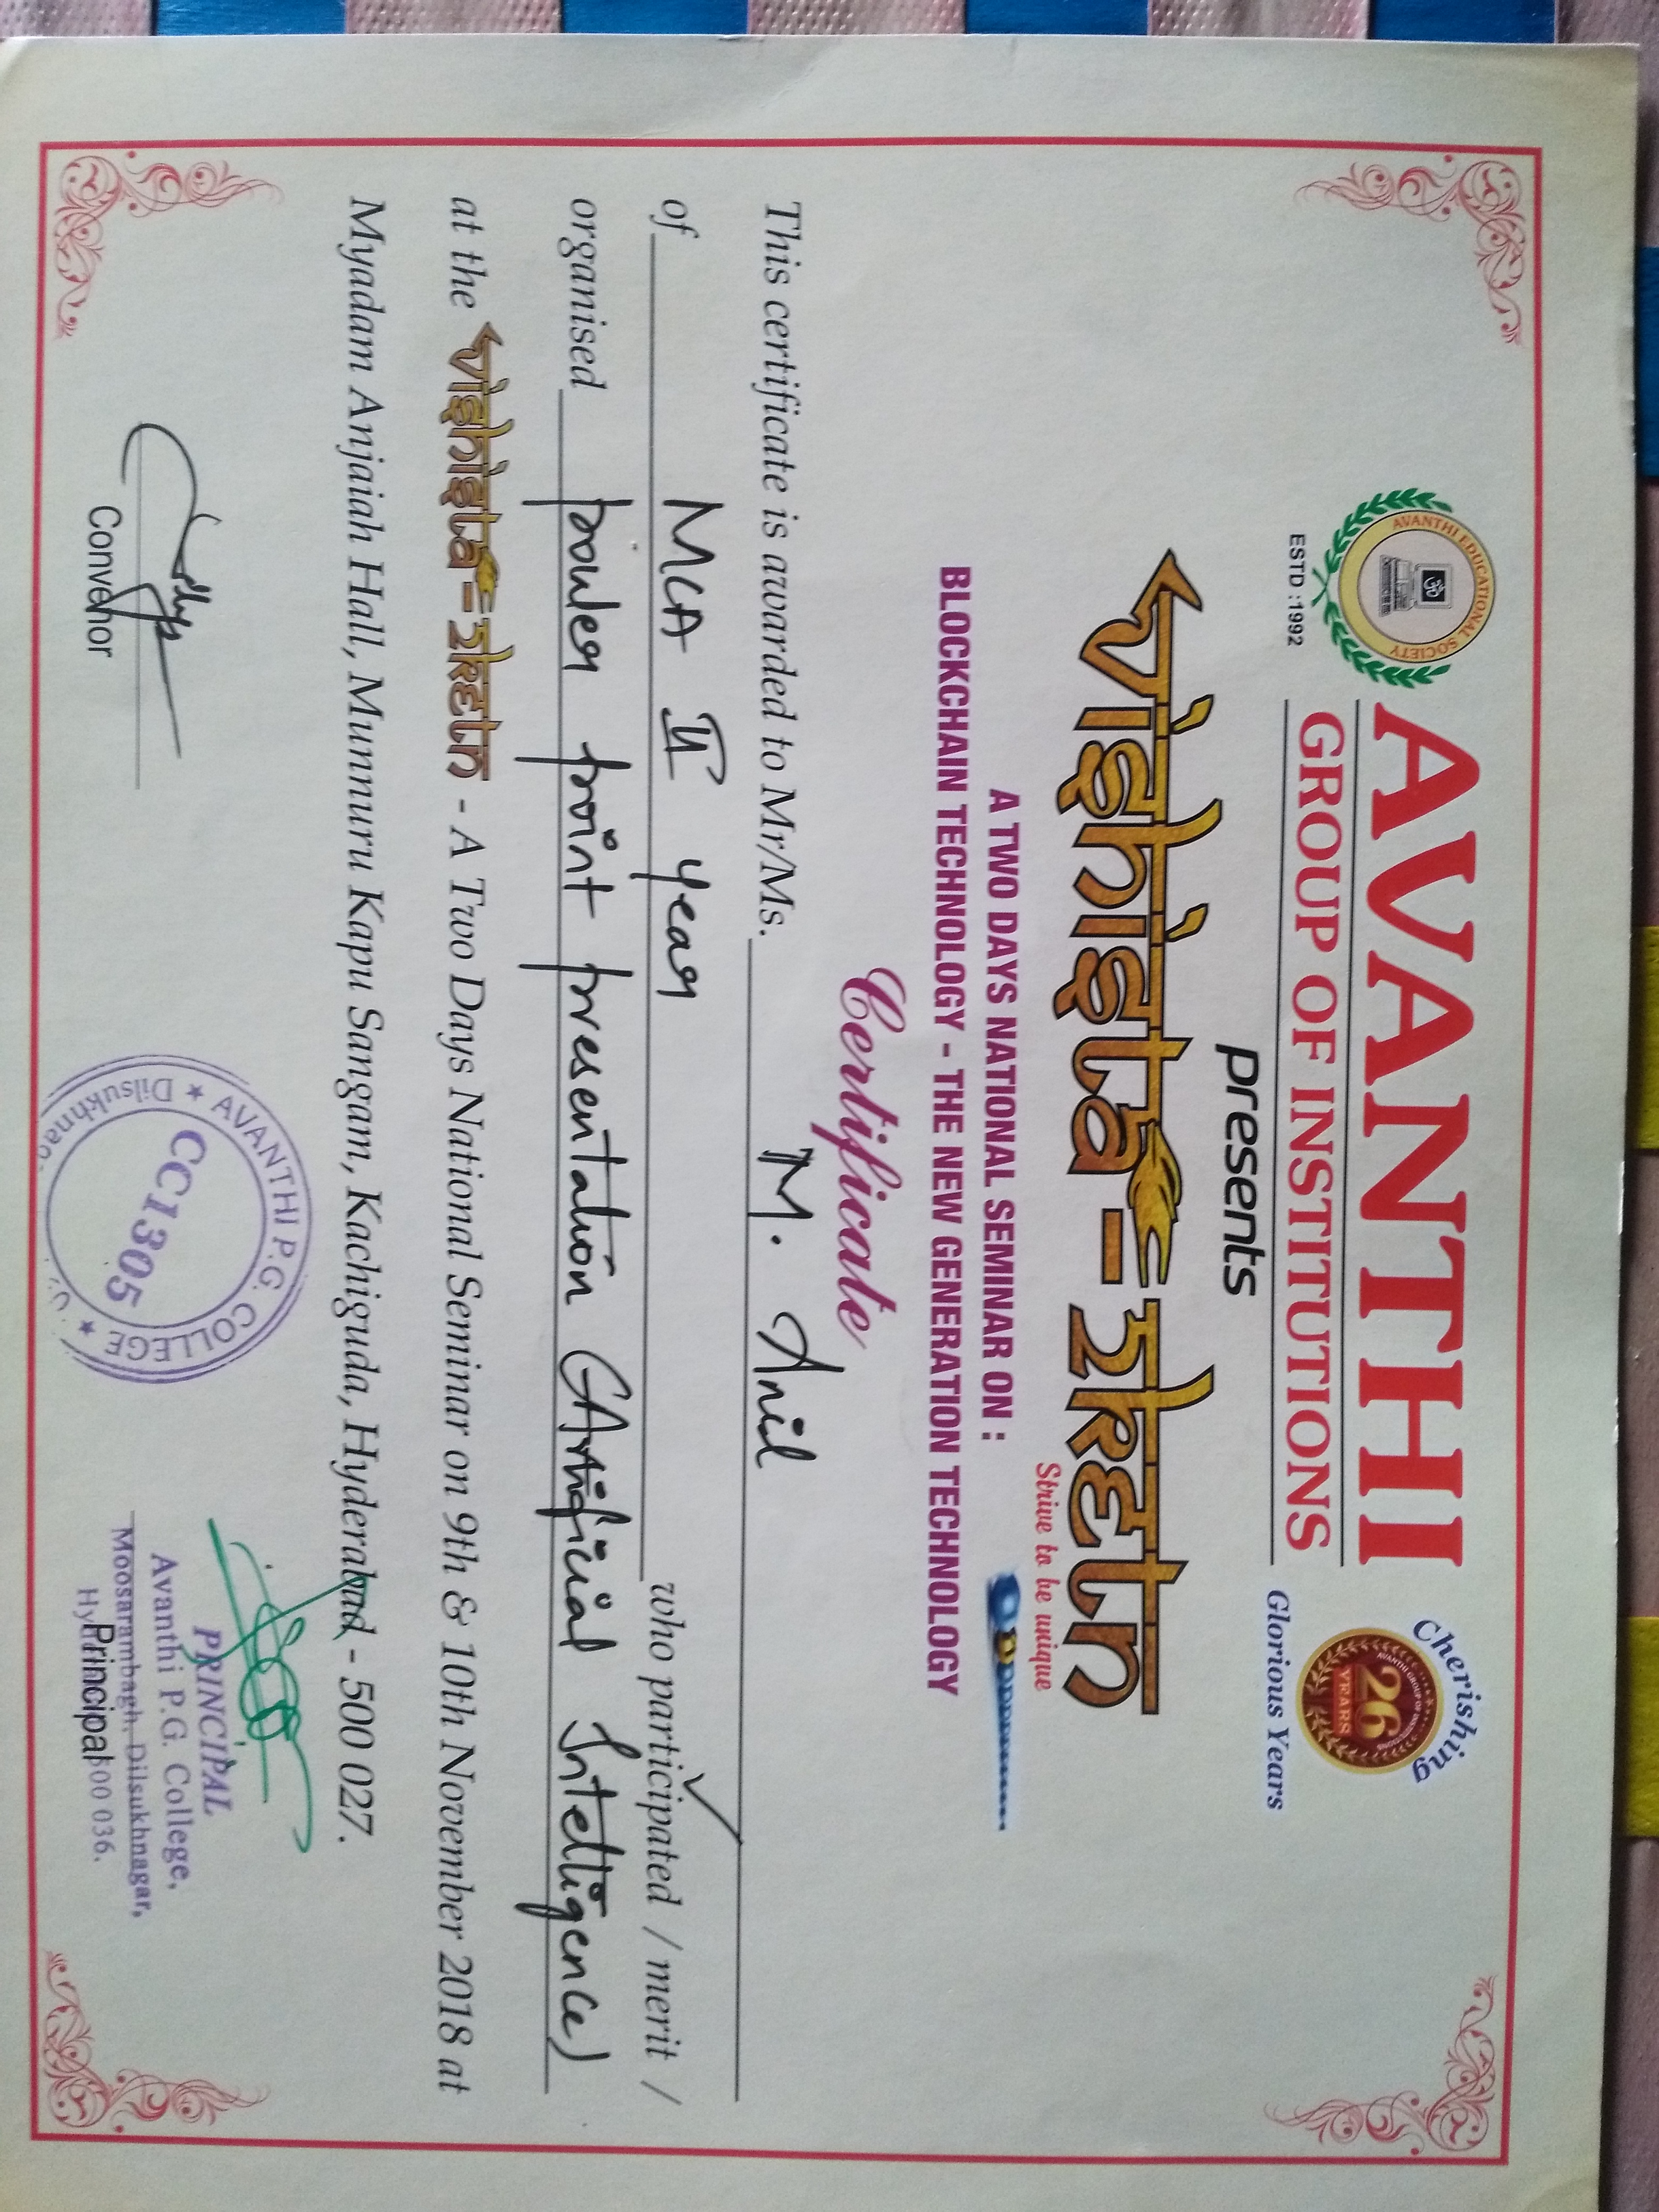 AVANTHI EDUCATIONAL SOCIETY
ESTD :1992
AVANTHI
GROUP OF INSTITUTIONS
Cherishing
AVANTHI GROUP OF INSTITUTIONS
26
YEARS
Glorious Years
presents
vishista - 2ketn
Strive to be unique
A TWO DAYS NATIONAL SEMINAR ON :
BLOCKCHAIN TECHNOLOGY - THE NEW GENERATION TECHNOLOGY
Certificate
This certificate is awarded to Mr/Ms. M. Anil
of MCA II year who participated / merit /
organised power point presentation (Artificial Intelligence)
at the vishista - 2ketn - A Two Days National Seminar on 9th & 10th November 2018 at
Myadam Anjaiah Hall, Munnuru Kapu Sangam, Kachiguda, Hyderabad - 500 027.
AVANTHI P.G. COLLEGE
CC1305
PRINCIPAL
Avanthi P.G. College,
Moosarambagh, Dilsukhnagar,
500 036.
Convenor
Principal